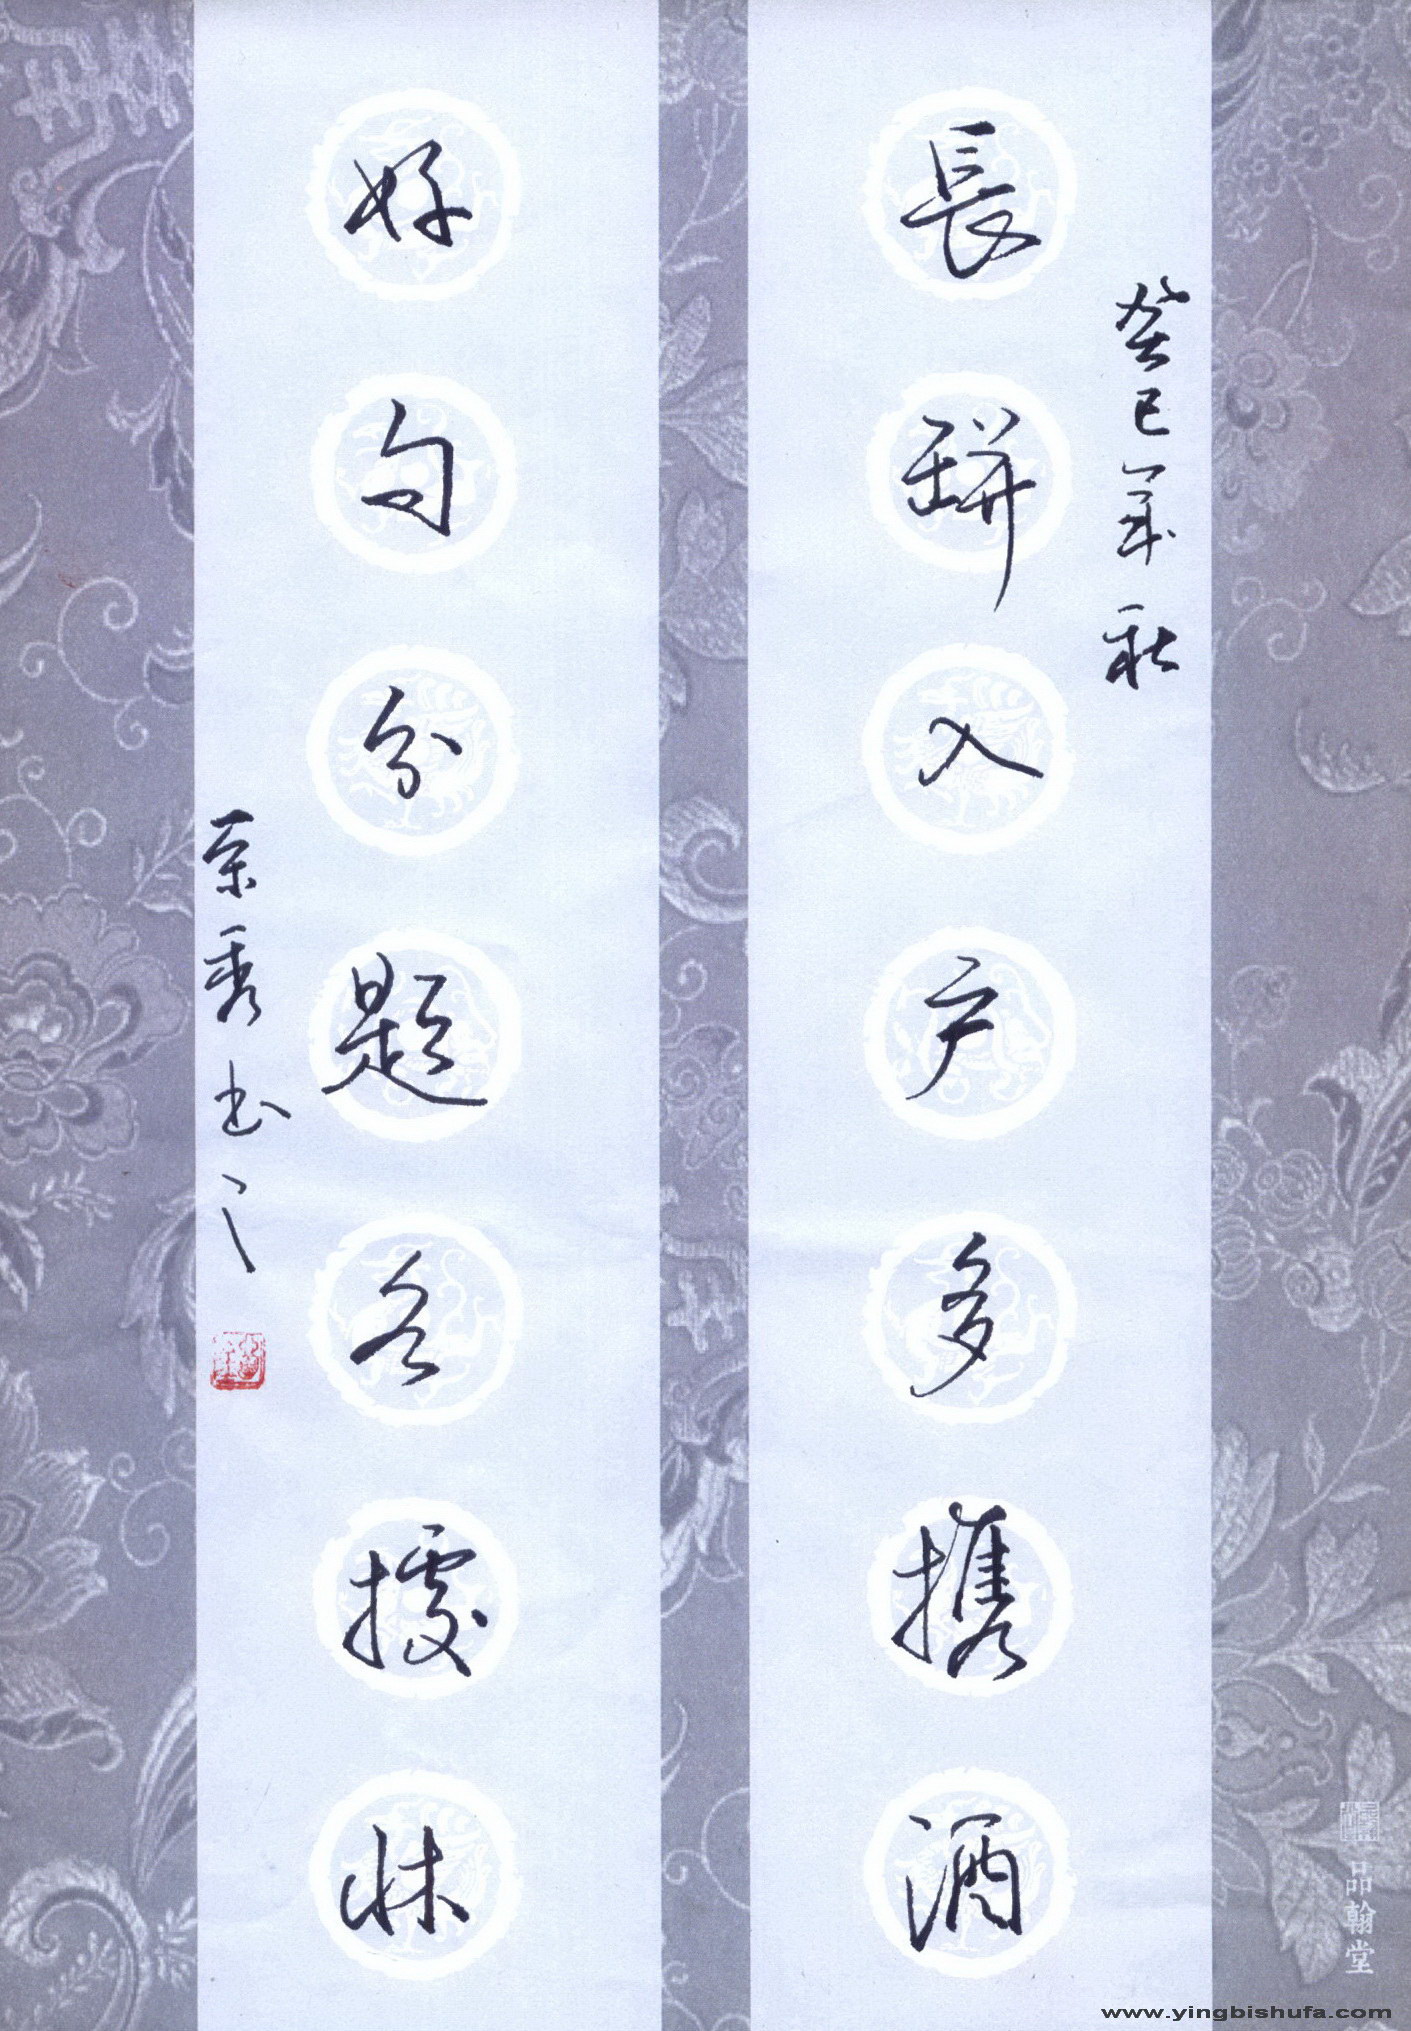 癸巳年秋
長缾入户多携酒
好句分題各據牀
秀书之
品翰堂
www.yingbishufa.com